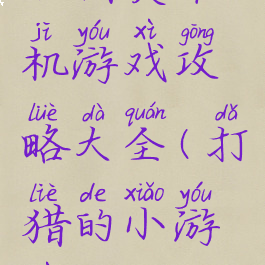 jī yóu xì gōng
机游戏攻
lüè dà quán dǎ
略大全(打
liè de xiǎo yóu
猎的小游